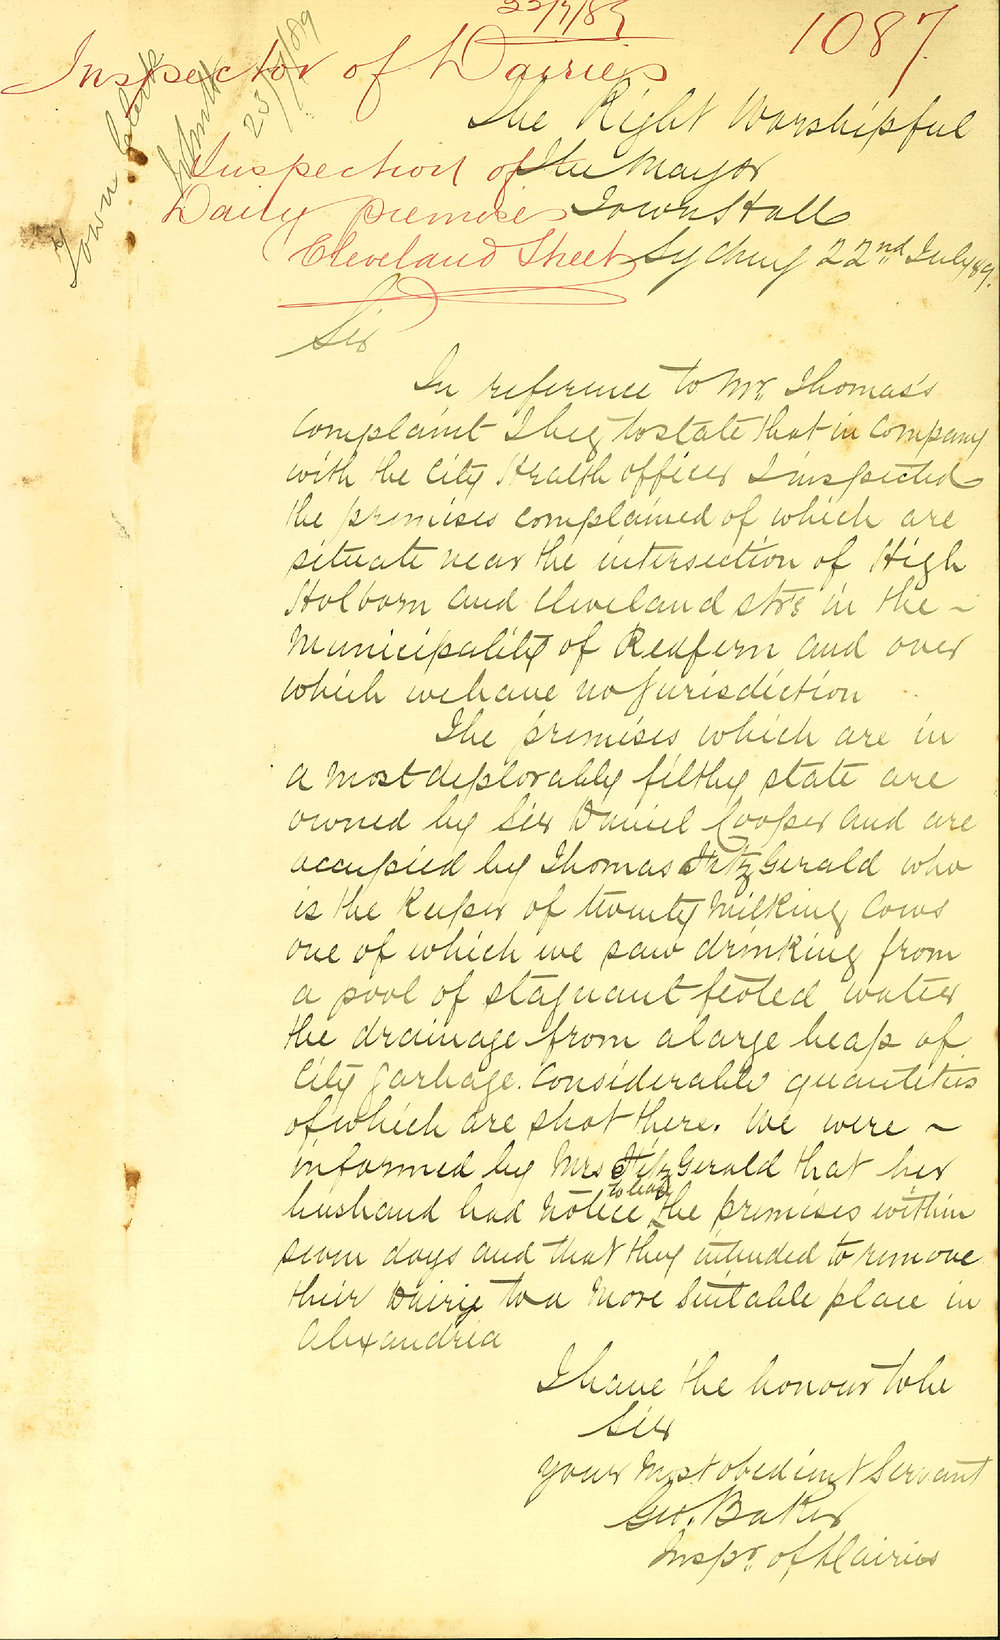 22/7/89
1087.
Inspector of Dairies
Town Clerk
23/7/89
The Right Worshipful
Inspection of
The Mayor
Dairy premises
Town Hall
Cleveland Street
Sydney 22nd July 89.
Sir
In reference to Mr. Thomas's
Complaint I beg to state that in Company
with the City Health officer I inspected
the premises complained of which are
situate near the intersection of High
Holborn and Cleveland strs in the –
Municipality of Redfern and over
which we have no Jurisdiction
The premises which are in
a most deplorably filthy state are
owned by Sir Daniel Cooper and are
occupied by Thomas FitzGerald who
is the Keeper of twenty Milking Cows
one of which we saw drinking from
a pool of stagnant feoted water
the drainage from a large heap of
City garbage. Considerable quantities
of which are shot there. We were –
informed by Mrs FitzGerald that her
husband had Notice to leave the premises within
seven days and that they intended to remove
their Dairy to a More Suitable place in
Alexandria
I have the honour to be
Sir
your Most obedient Servant
Geo. Baker
Inspr. of Dairies